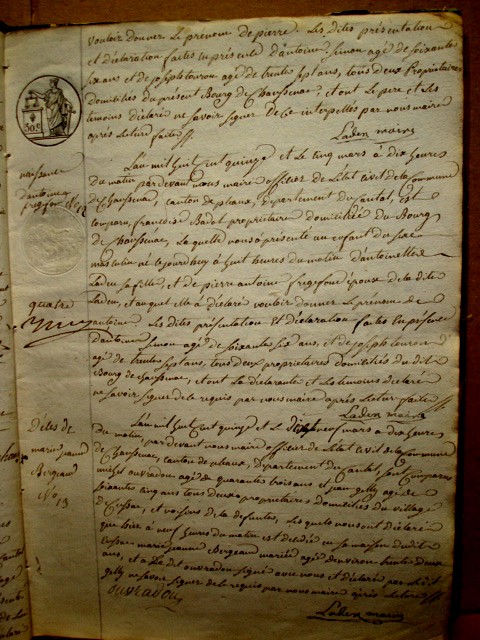 vouloir donner le prenom de pierre. Les dites présentation
et déclaration faites en présence d'antoine Simon agé de soixante
six ans et de joseph touron agé de trente sept ans, tous deux Proprietaires
domiciliés du présent Bourg de Chaussenac, et ont le pere et les
temoins déclaré ne savoir signer de ce interpellés par nous maire
après lecture faite
Laden maire
naissance
d'antoine
fregefon
No 12
L'an mil huit cent quinze et le cinq mars à dix heures
du matin par devant nous maire officier de l'état civil de la commune
de Chaussenac, canton de pleaux, département du cantal, est
comparu françoise Badot proprietaire domiciliée du Bourg
de Chaussenac, laquelle nous a présenté un enfant du sexe
masculin né le jourd'huy à huit heures du matin d'antoinette
Laden sa fille, et de pierre antoine fregefon epoux de la dite
Laden, et auquel elle a déclaré vouloir donner le prénom de
antoine. Les dites présentation et déclaration faites en présence
d'antoine Simon agé de soixante six ans, et de joseph touron
agé de trente sept ans, tous deux proprietaires domiciliés du dit
Bourg de chaussenac, et ont la déclarante et les temoins déclaré
ne savoir signer de ce requis par nous maire après lecture faite
Laden maire
quatre
Décès de
marie jeanne
Bergeaud
No 13
L'an mil huit cent quinze et le dix neuf mars a dix heures
du matin, par devant nous maire officier de l'état civil de la commune
de Chaussenac, canton de pleaux, Département du Cantal, sont comparus
ouvradou agé de quarante trois ans et jean gelly agé de
soixante cinq ans tous deux proprietaires domiciliés du village
de Cussac, et voisins de la defunte, lesquels nous ont déclaré
que hier à neuf heures du matin est decedée en sa maison du dit
Cussac marie jeanne Bergeaud mariée agée d'environ trente deux
ans, et le dit ouvradou signé avec nous et déclaré par le dit
gelly ne savoir signer de ce requis par nous maire après lecture
ouvradou
Laden maire